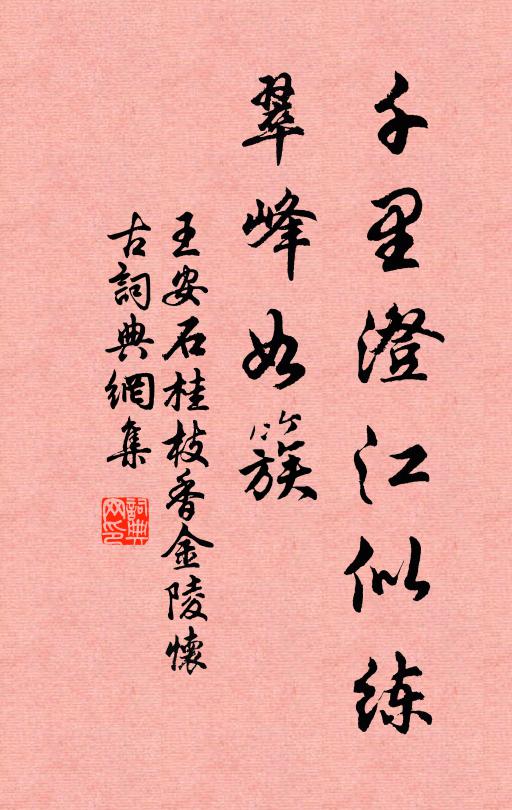 千里澄江似练
翠峰如簇
王安石桂枝香金陵懷
古詞典網集
詞典網印